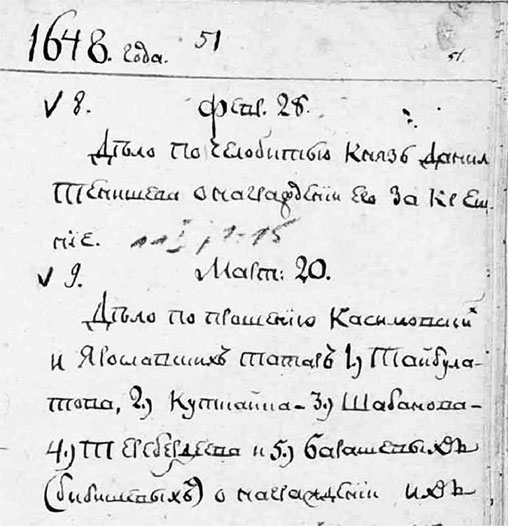 1648. года. 51
51.
√ 8. Фев. 28.
Дѣло по челобитью Князь Данил
Тенишева о награжденіи его за креще-
ніе.
√ 9. Март: 20.
Дѣло по прошенію Касимовских
и Ярославскихъ татаръ 1,) Тайбула-
това, 2,) Кутмайна - 3,) Шабанова -
4,) Тересбердеева и 5,) Барашевыхъ
(бибишевыхъ) о награжденіи ихъ